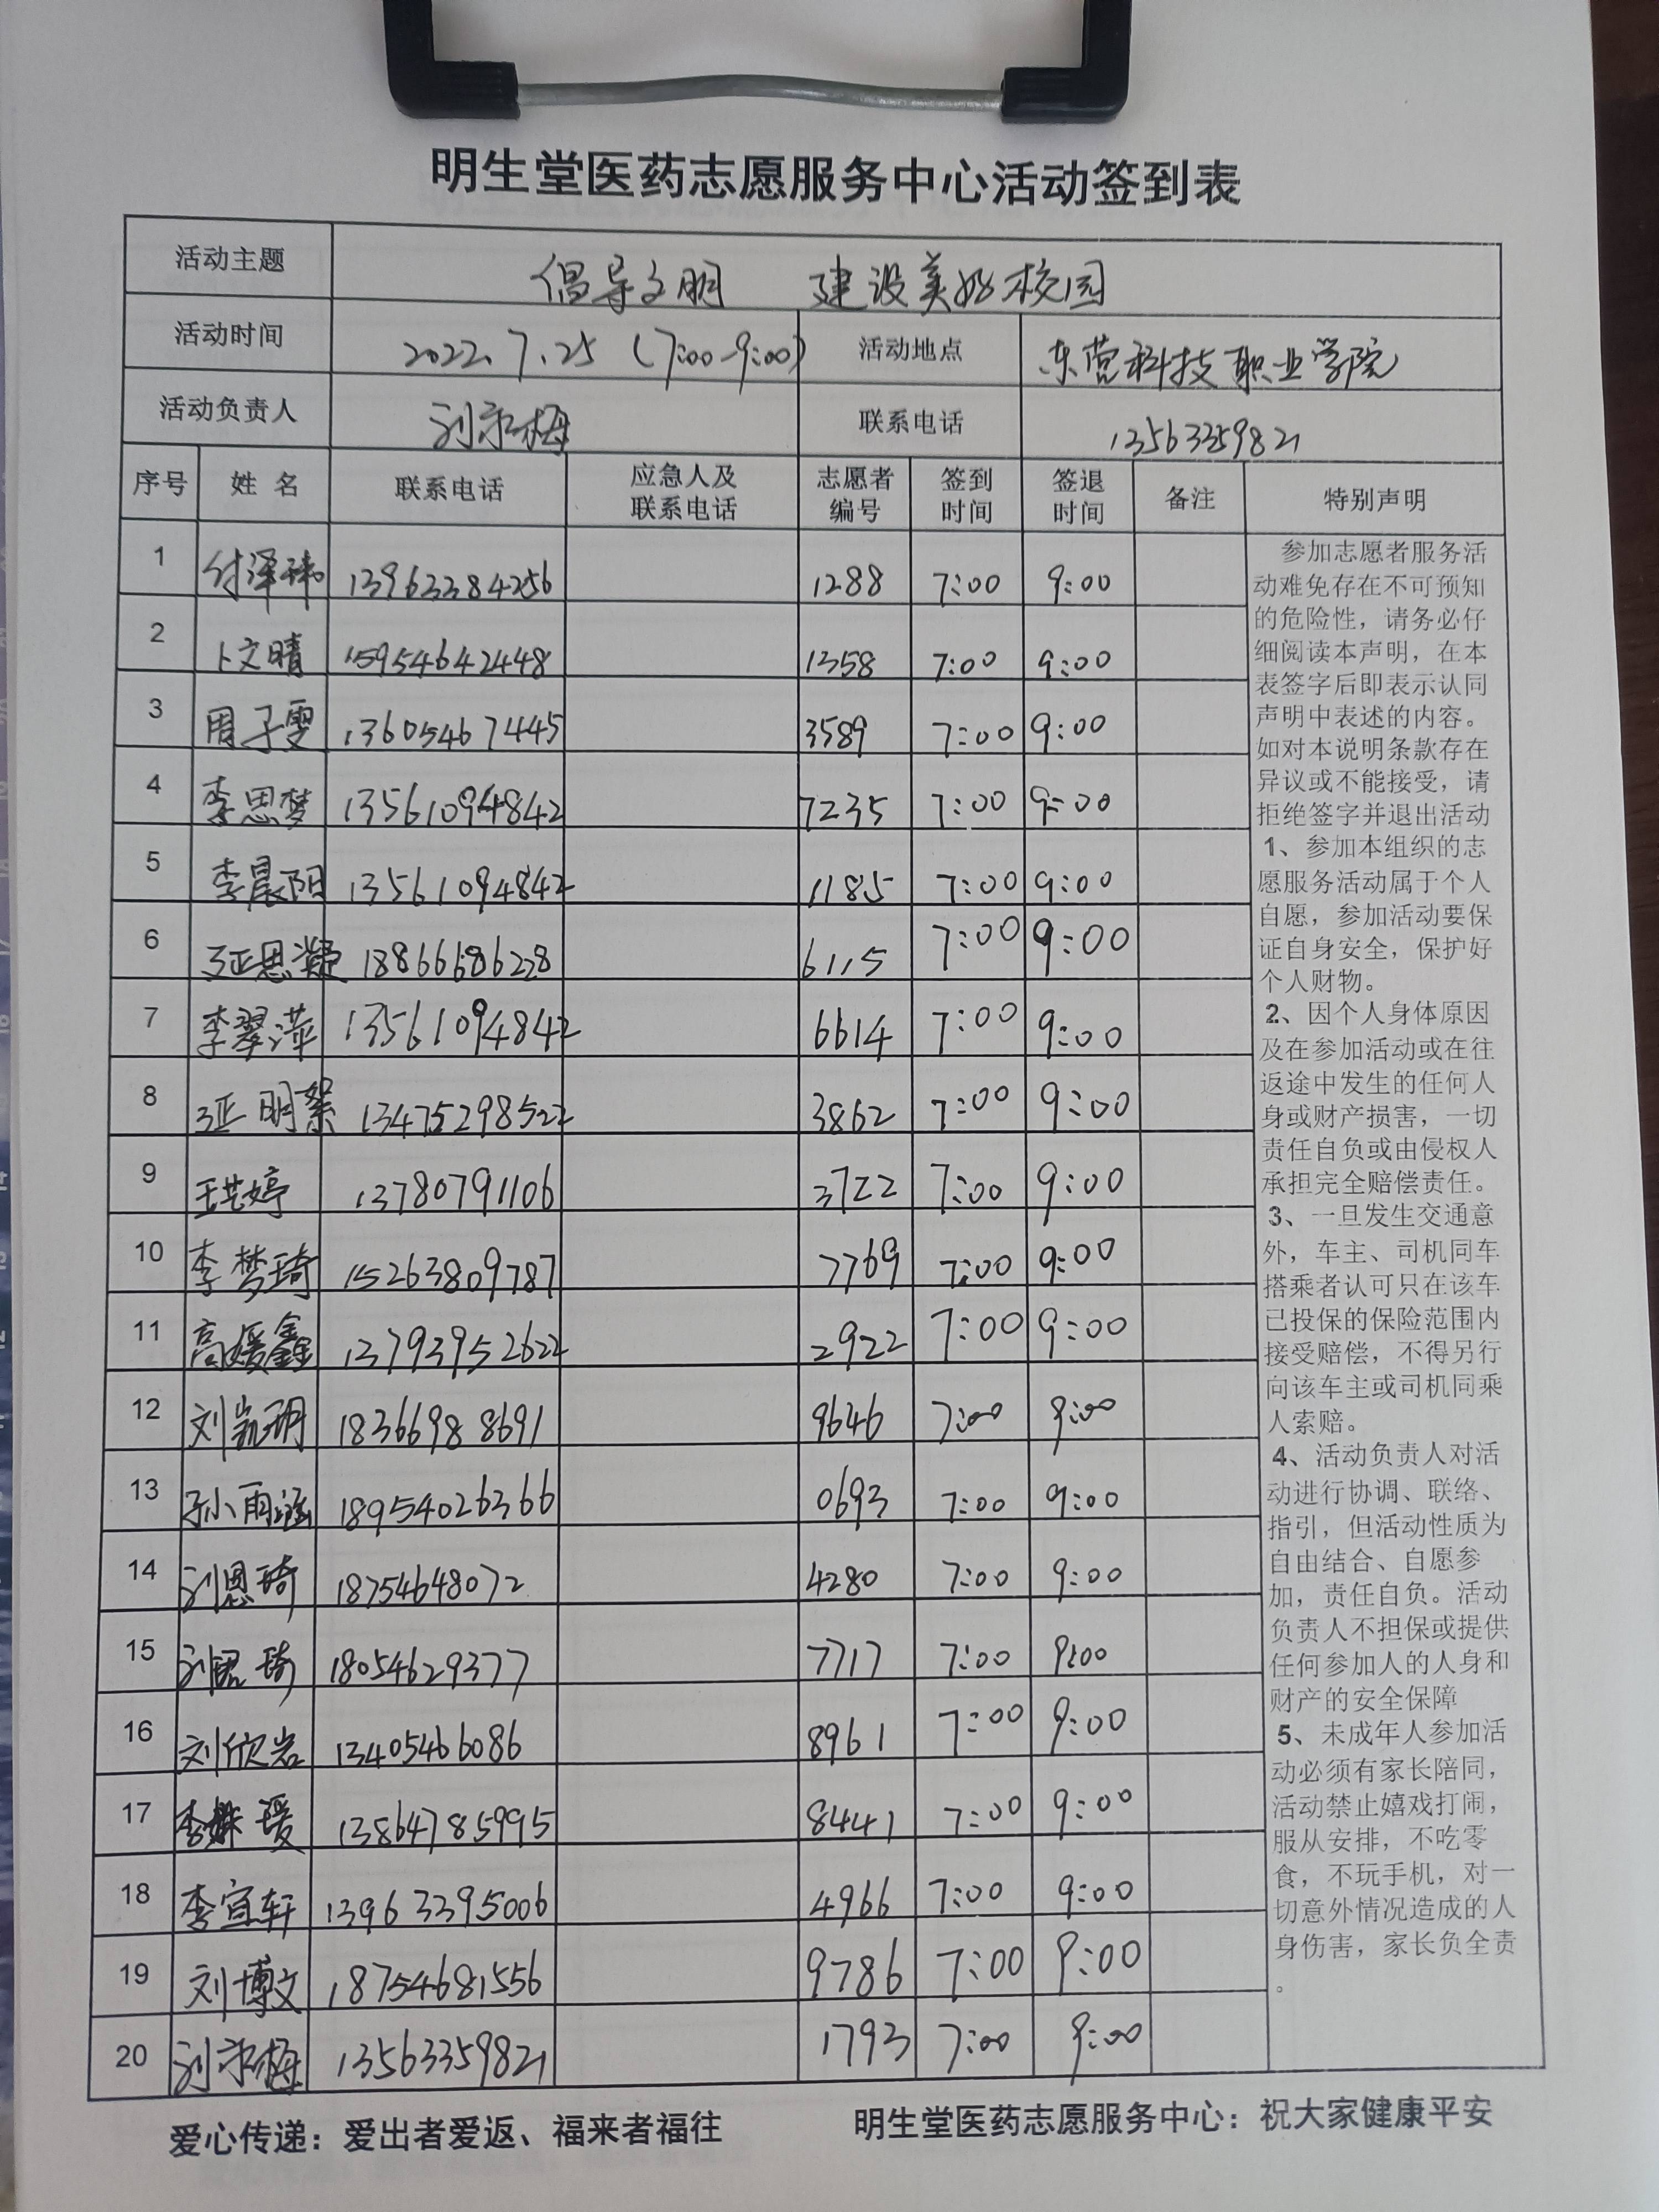 明生堂医药志愿服务中心活动签到表
活动主题 倡导文明 建设美好校园
活动时间 2022.7.25 (7:00-9:00) 活动地点 东营科技职业学院
活动负责人 刘永梅 联系电话 13563359821
序号 姓名 联系电话 应急人及联系电话 志愿者编号 签到时间 签退时间 备注 特别声明
1 付泽 13963384256 1288 7:00 9:00
2 卜文晴 15954642448 1358 7:00 9:00
3 周子雯 13605467445 3589 7:00 9:00
4 李思梦 13561094842 7235 7:00 9:00
5 李晨阳 13561094842 1185 7:00 9:00
6 思凝 18866686228 6115 7:00 9:00
7 李翠萍 13561094842 6614 7:00 9:00
8 明絮 13475298522 3862 7:00 9:00
9 王芸婷 13780791106 3722 7:00 9:00
10 李梦琦 15263809787 7769 7:00 9:00
11 高媛鑫 13793952622 2922 7:00 9:00
12 刘凯玥 18366988691 9646 7:00 9:00
13 孙雨涵 18954026366 0693 7:00 9:00
14 刘恩琦 18754648072 4280 7:00 9:00
15 刘琦 18054629377 7717 7:00 9:00
16 刘欣岩 13405466086 8961 7:00 9:00
17 李姝瑗 13864785995 8441 7:00 9:00
18 李宣轩 13963395006 4966 7:00 9:00
19 刘博文 18754681556 9786 7:00 9:00
20 刘永梅 13563359821 1793 7:00 9:00
参加志愿者服务活
动难免存在不可预知
的危险性，请务必仔
细阅读本声明，在本
表签字后即表示认同
声明中表述的内容。
如对本说明条款存在
异议或不能接受，请
拒绝签字并退出活动
1、参加本组织的志
愿服务活动属于个人
自愿，参加活动要保
证自身安全，保护好
个人财物。
2、因个人身体原因
及在参加活动或在往
返途中发生的任何人
身或财产损害，一切
责任自负或由侵权人
承担完全赔偿责任。
3、一旦发生交通意
外，车主、司机同车
搭乘者认可只在该车
已投保的保险范围内
接受赔偿，不得另行
向该车主或司机同乘
人索赔。
4、活动负责人对活
动进行协调、联络、
指引，但活动性质为
自由结合、自愿参
加，责任自负。活动
负责人不担保或提供
任何参加人的人身和
财产的安全保障
5、未成年人参加活
动必须有家长陪同，
活动禁止嬉戏打闹，
服从安排，不吃零
食，不玩手机，对一
切意外情况造成的人
身伤害，家长负全责
。
爱心传递：爱出者爱返、福来者福往 明生堂医药志愿服务中心：祝大家健康平安